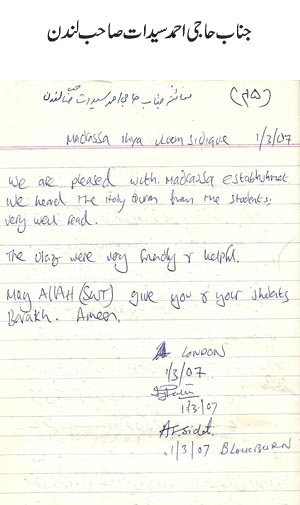 جناب حاجی احمد سیدات صاحب لندن
(۲۵) معائنہ جناب حاجی احمد سیدات صاحب لندن
Madrassa Ihya uloom Sidique 1/3/07
We are pleased with Madrassa Establishment
we heard the Holy Quran from the students,
very well read.
The were very friendly & helpful.
May AllAH (SWT) give you & your students
Barakh. Ameen.
LONDON
1/3/07
1/3/07
A.I. Sidat.
1/3/07 BLACKBURN